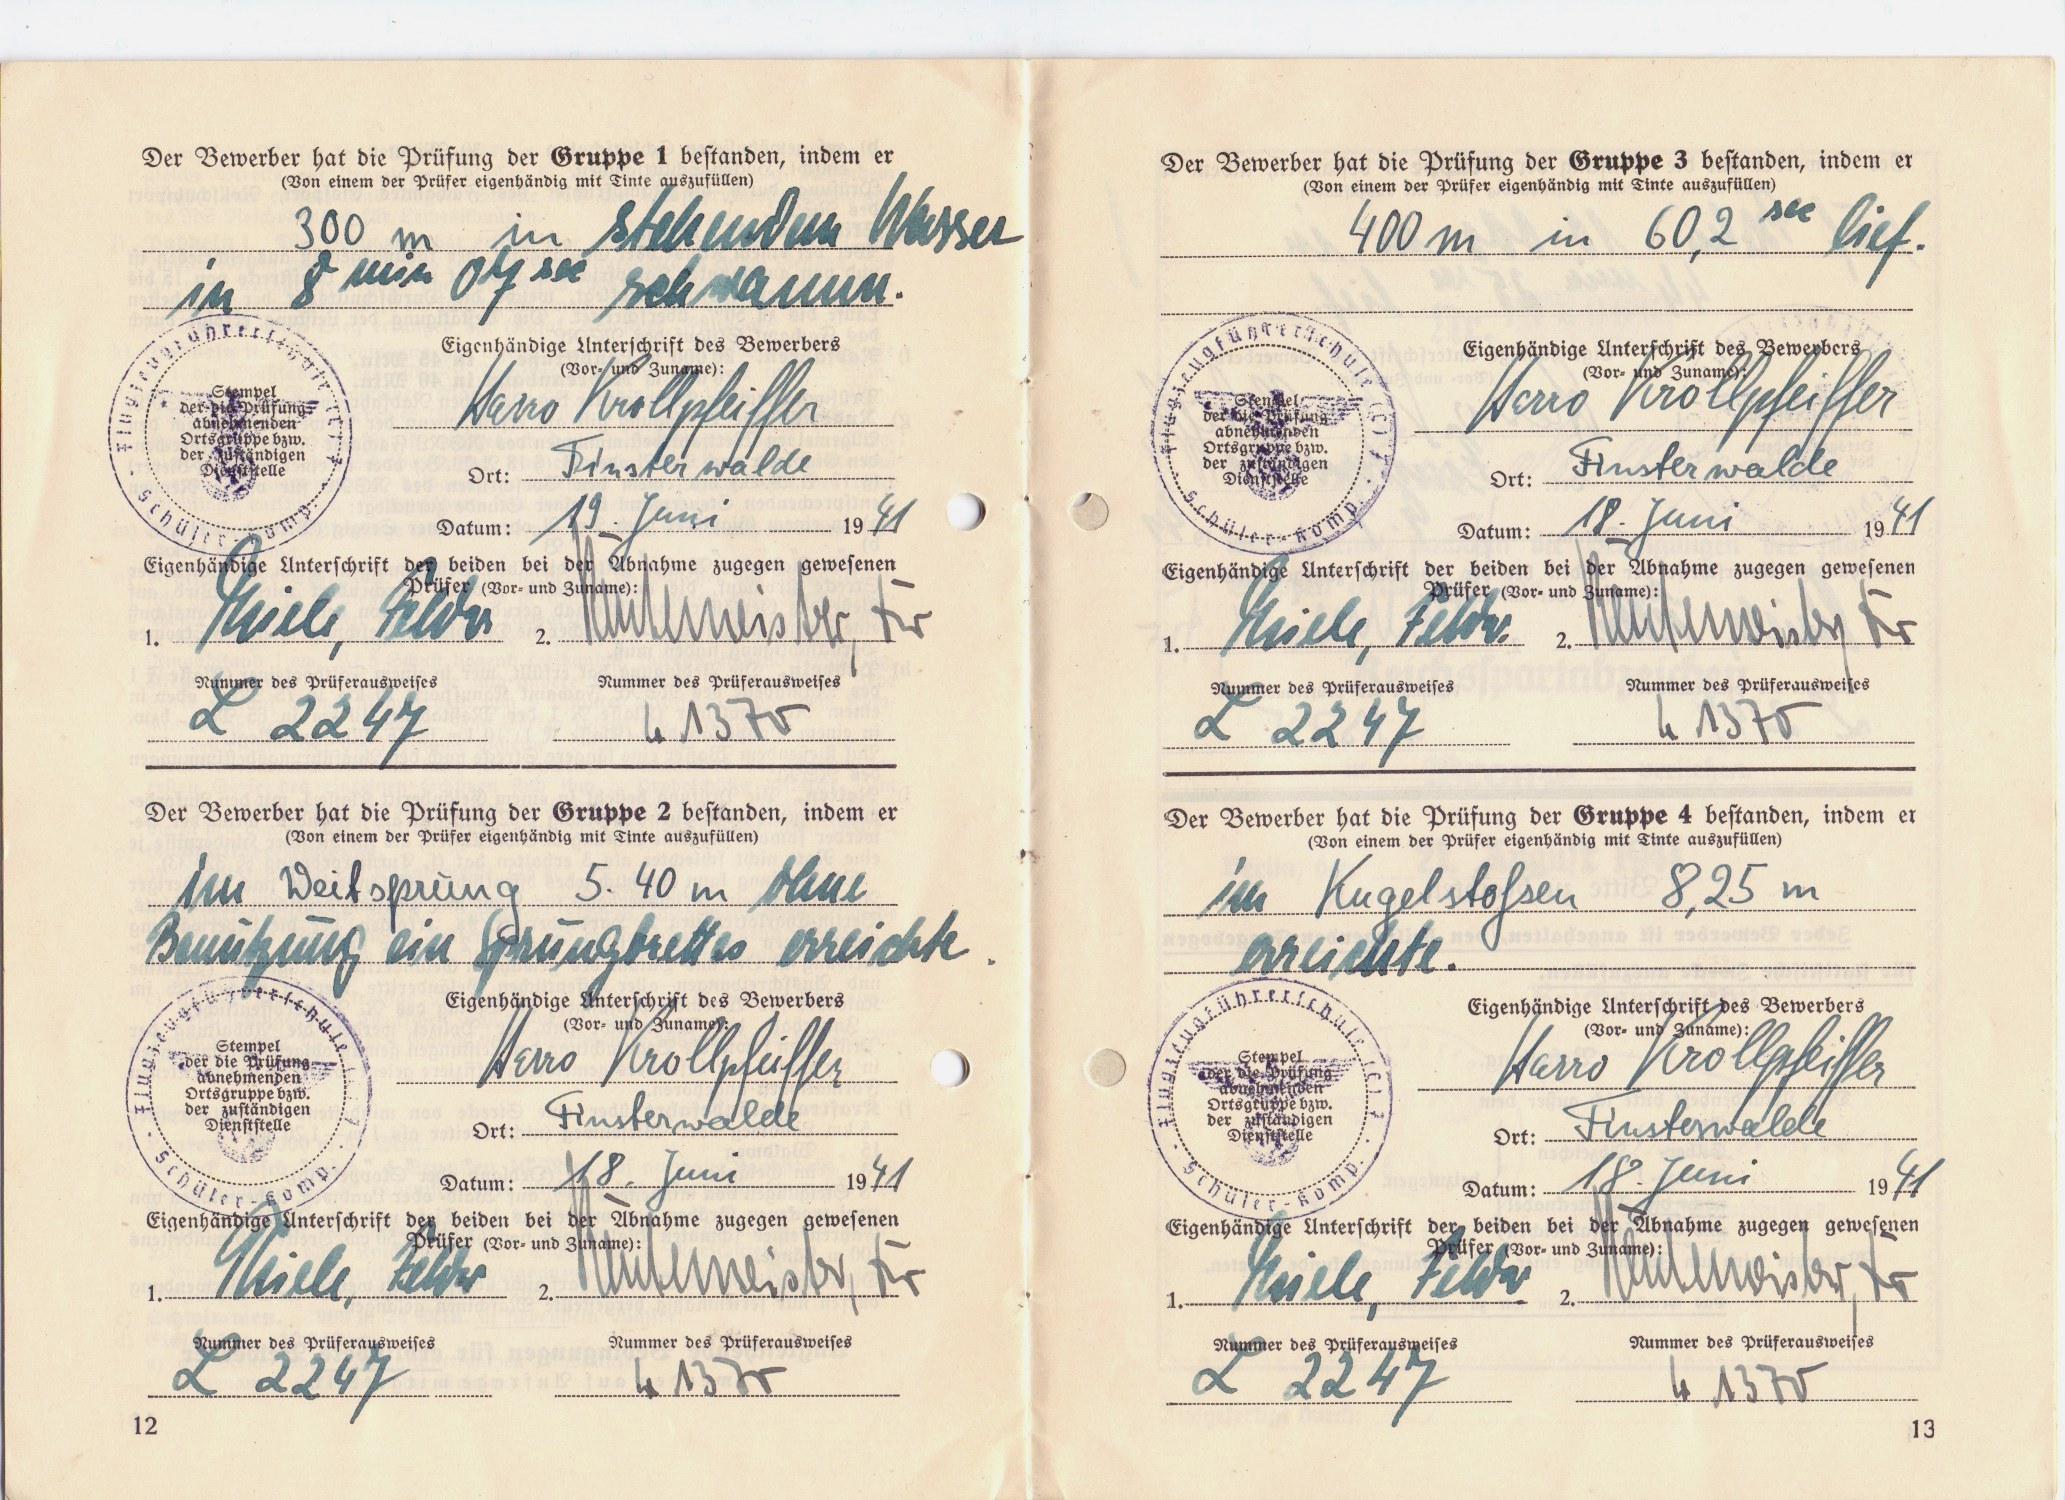 Der Bewerber hat die Prüfung der Gruppe 1 bestanden, indem er
(Von einem der Prüfer eigenhändig mit Tinte auszufüllen)
300 m in stehendem Wasser
in 8 min 07 sec schwamm.
Flugzeugführerschule
Schüler-Komp.
Stempel
der die Prüfung
abnehmenden
Ortsgruppe bzw.
der zuständigen
Dienststelle
Eigenhändige Unterschrift des Bewerbers
(Vor- und Zuname):
Harro Krollpfeiffer
Ort: Finsterwalde
Datum: 19. Juni 1941
Eigenhändige Unterschrift der beiden bei der Abnahme zugegen gewesenen
Prüfer (Vor- und Zuname):
1. Thiele, Feldw. 2.
Nummer des Prüferausweises Nummer des Prüferausweises
L 2247 L 1370
Der Bewerber hat die Prüfung der Gruppe 2 bestanden, indem er
(Von einem der Prüfer eigenhändig mit Tinte auszufüllen)
im Weitsprung 5.40 m ohne
Benützung ein Sprungbrettes erreichte.
Flugzeugführerschule
Schüler-Komp.
Stempel
der die Prüfung
abnehmenden
Ortsgruppe bzw.
der zuständigen
Dienststelle
Eigenhändige Unterschrift des Bewerbers
(Vor- und Zuname):
Harro Krollpfeiffer
Ort: Finsterwalde
Datum: 18. Juni 1941
Eigenhändige Unterschrift der beiden bei der Abnahme zugegen gewesenen
Prüfer (Vor- und Zuname):
1. Thiele, Feldw. 2.
Nummer des Prüferausweises Nummer des Prüferausweises
L 2247 L 1370
12
Der Bewerber hat die Prüfung der Gruppe 3 bestanden, indem er
(Von einem der Prüfer eigenhändig mit Tinte auszufüllen)
400 m in 60,2 sec lief.
Flugzeugführerschule (C)
Schüler-Komp.
Stempel
der die Prüfung
abnehmenden
Ortsgruppe bzw.
der zuständigen
Dienststelle
Eigenhändige Unterschrift des Bewerbers
(Vor- und Zuname):
Harro Krollpfeiffer
Ort: Finsterwalde
Datum: 18. Juni 1941
Eigenhändige Unterschrift der beiden bei der Abnahme zugegen gewesenen
Prüfer (Vor- und Zuname):
1. Thiele, Feldw. 2.
Nummer des Prüferausweises Nummer des Prüferausweises
L 2247 L 1370
Der Bewerber hat die Prüfung der Gruppe 4 bestanden, indem er
(Von einem der Prüfer eigenhändig mit Tinte auszufüllen)
im Kugelstoßen 8,25 m
erreichte.
Flugzeugführerschule (C)
Schüler-Komp.
Stempel
der die Prüfung
abnehmenden
Ortsgruppe bzw.
der zuständigen
Dienststelle
Eigenhändige Unterschrift des Bewerbers
(Vor- und Zuname):
Harro Krollpfeiffer
Ort: Finsterwalde
Datum: 18. Juni 1941
Eigenhändige Unterschrift der beiden bei der Abnahme zugegen gewesenen
Prüfer (Vor- und Zuname):
1. Thiele, Feldw. 2.
Nummer des Prüferausweises Nummer des Prüferausweises
L 2247 L 1370
13